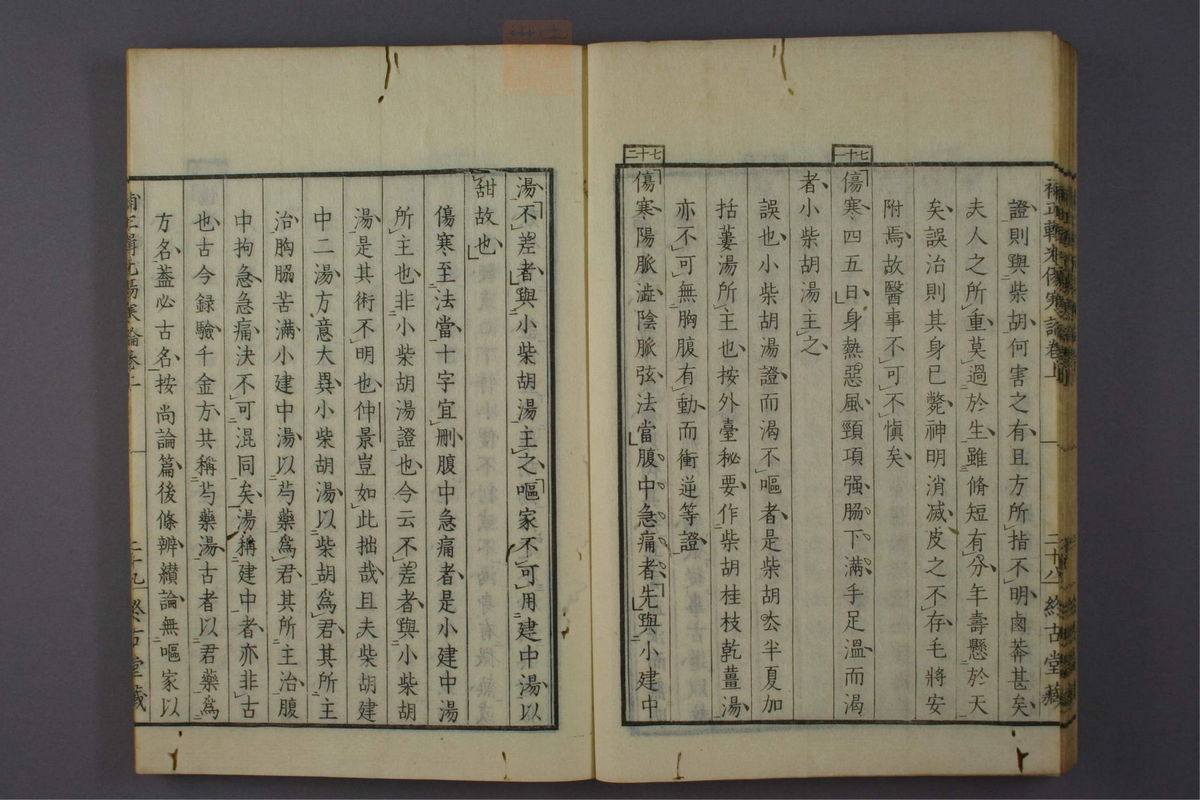 補正輯光傷寒論卷上 二十八 終古堂藏
證則與柴胡何害之有且方所指不明鹵莽甚矣
夫人之所重莫過於生雖脩短有分年壽懸於天
矣誤治則其身已斃神明消减皮之不存毛將安
附焉故醫事不可不愼矣
七十一
傷寒四五日身熱惡風頸項强脇下滿手足溫而渴
者小柴胡湯主之
誤也小柴胡湯證而渴不嘔者是柴胡去半夏加
括蔞湯所主也按外臺秘要作柴胡桂枝乾薑湯
亦不可無胸腹有動而衝逆等證
七十二
傷寒陽脈澁陰脈弦法當腹中急痛者先與小建中
湯不差者與小柴胡湯主之嘔家不可用建中湯以
甜故也
傷寒至法當十字宜刪腹中急痛者是小建中湯
所主也非小柴胡湯證也今云不差者與小柴胡
湯是其術不明也仲景豈如此拙哉且夫柴胡建
中二湯方意大異小柴胡湯以柴胡爲君其所主
治胸脇苦滿小建中湯以芍藥爲君其所主治腹
中拘急急痛決不可混同矣湯稱建中者亦非古
也古今録驗千金方共稱芍藥湯古者以君藥爲
方名蓋必古名按尚論篇後條辨纘論無嘔家以